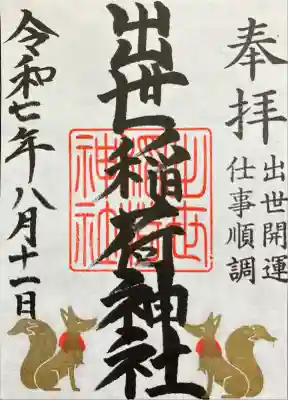 奉拝
出世開運
仕事順調
出世稲荷神社
出世稲荷神社
令和七年八月十一日